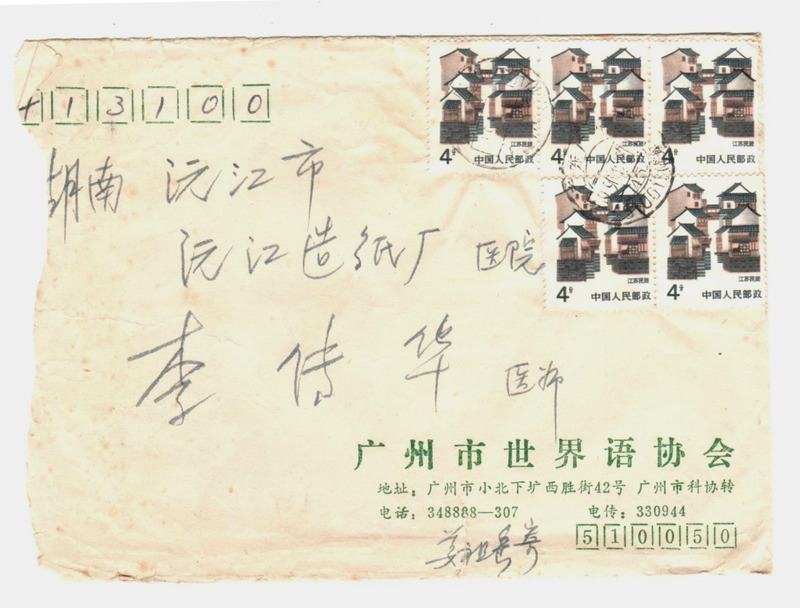 江苏民居 江苏民居 江苏民居
4分 中国人民邮政 4分 中国人民邮政 4分 中国人民邮政
413100
湖南 沅江市
沅江造纸厂 医院
江苏民居 江苏民居
4分 中国人民邮政 4分 中国人民邮政
李传华 医师
广州市世界语协会
地址：广州市小北下圹西胜街42号 广州市科协转
电话：348888—307 电传：330944
510050
姜祖 寄